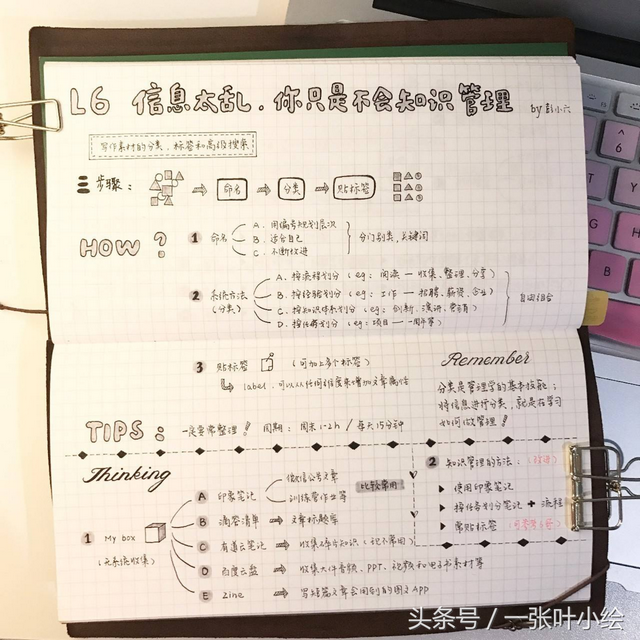 L6 信息太乱,你只是不会知识管理 by 彭小六
写作素材的分类、标签和高级搜索
三步骤: 命名 分类 贴标签
HOW?
1 命名
A. 用编号规划层次
B. 适合自己
C. 不断改进
分门别类,关键词
2 系统方法
(分类)
A. 按流程划分 (eg: 阅读 — 收集、整理、分享)
B. 按经验划分 (eg: 工作 — 招聘、薪资、企业)
C. 按知识体系划分 (eg: 创新、演讲、)
D. 按任务划分 (eg: 项目 — 一周年等)
自由组合
3 贴标签 (可加上多个标签)
label, 可以从任何角度来增加文章
TIPS: 一定要常整理! 周期: 周末 1-2h / 每天15分钟
Remember
分类是管理学的基本技能;
将信息进行分类,就是在学习
如何做管理!
Thinking
1 My box
(元系统收集)
A 印象笔记
微信公号文章
训练营作业等
比较常用
B 滴答清单 文章标题库
C 有道云笔记 收集碎片知识 (现不常用)
D 百度云盘 收集大件音频、PPT、视频和电子书素材等
E Zine 写短篇文章会用到的图文APP
2 知识管理的方法:
使用印象笔记
按任务划分笔记 + 流程
常贴标签
头条号 / 一张叶小绘
6